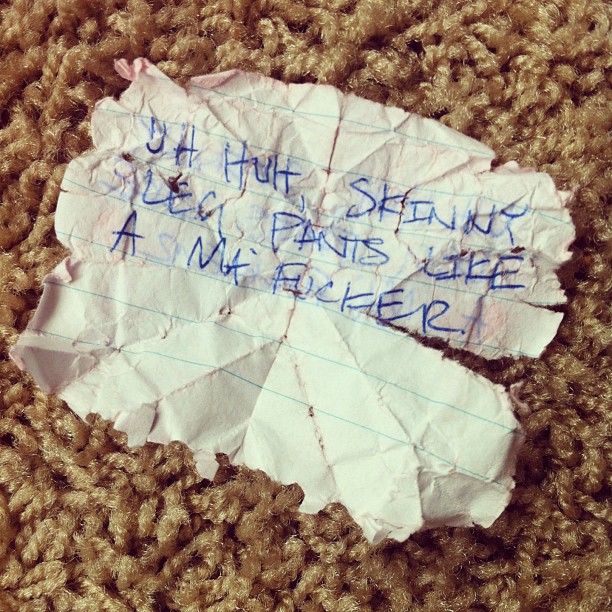 UH HUH, SKINNY
LEG PANTS LIKE
A MA' FUCKER.